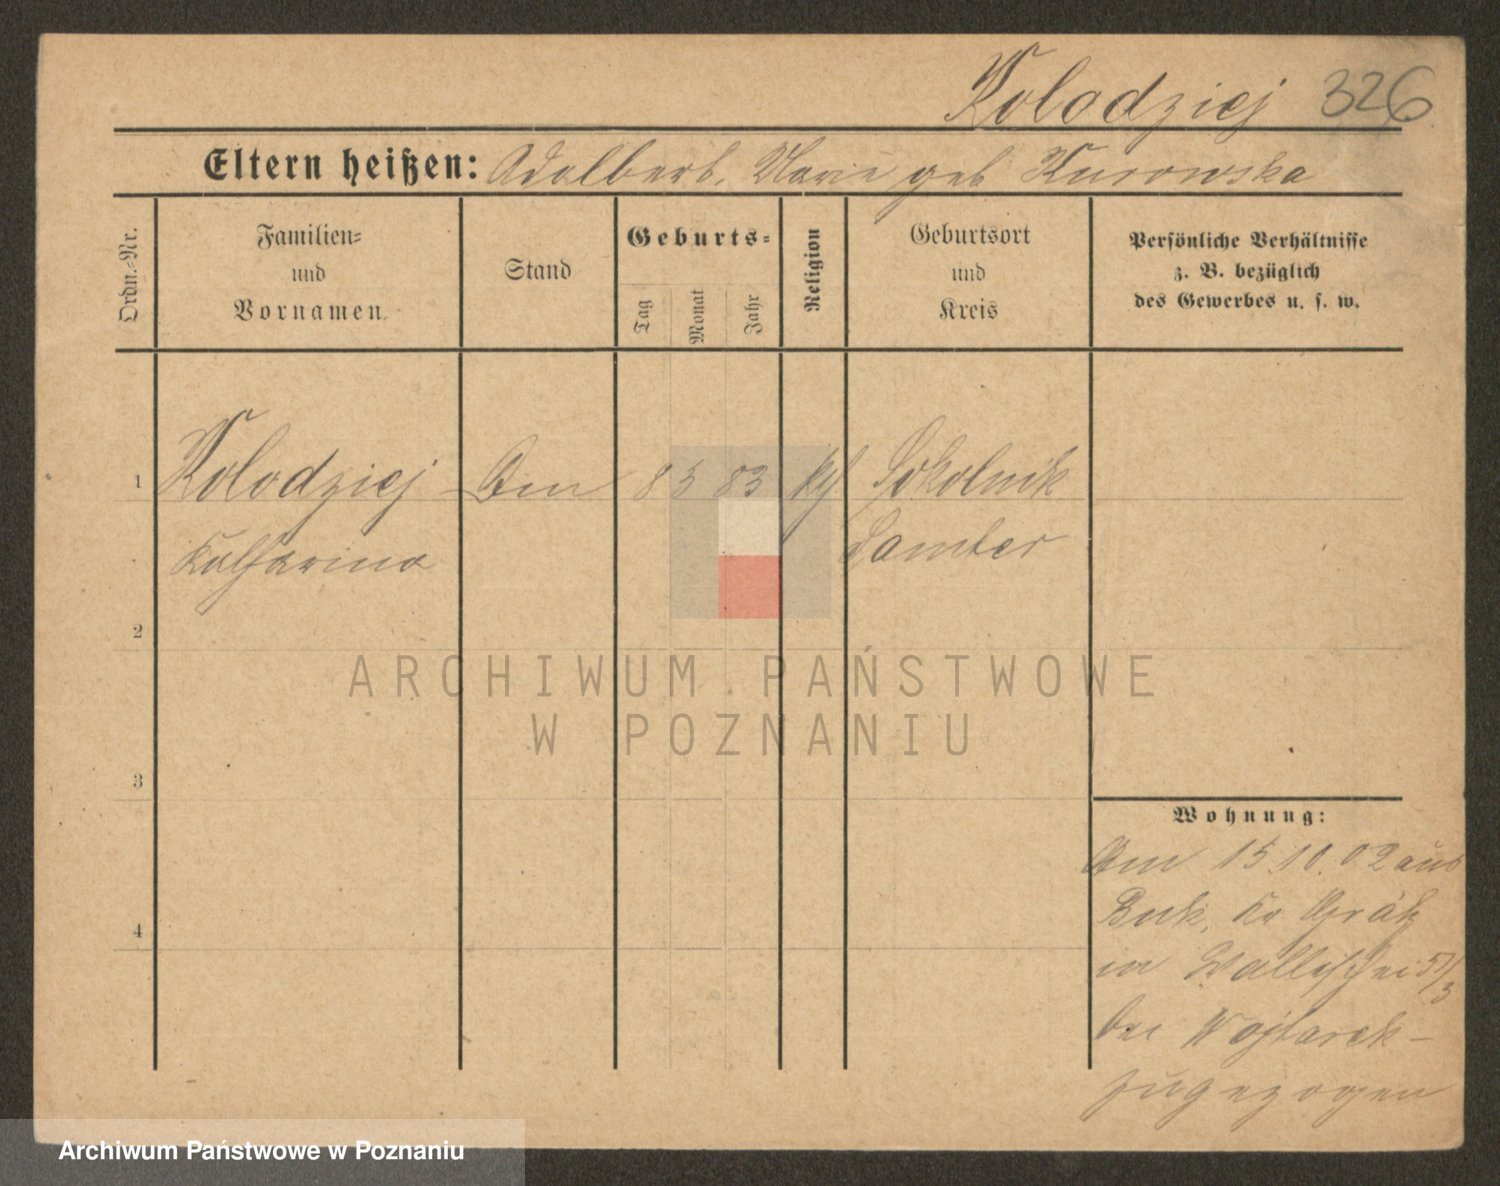 Kolodziej 326
Eltern heißen: Adalbert, Marie geb Kurowska
Ordn.-Nr.
Familien-
und
Vornamen
Stand
Geburts-
Tag
Monat
Jahr
Religion
Geburtsort
und
Kreis
Persönliche Verhältnisse
z. B. bezüglich
des Gewerbes u. s. w.
1 Kolodziej 8 5 83 Sokolnik
Katharina Samter
2
ARCHIWUM PAŃSTWOWE
W POZNANIU
3
Wohnung:
Am 15.10.02 aus
Buk, Kr Grätz
4
in Wallischei 57/3
bei Wojtarek-
zugezogen
Archiwum Państwowe w Poznaniu